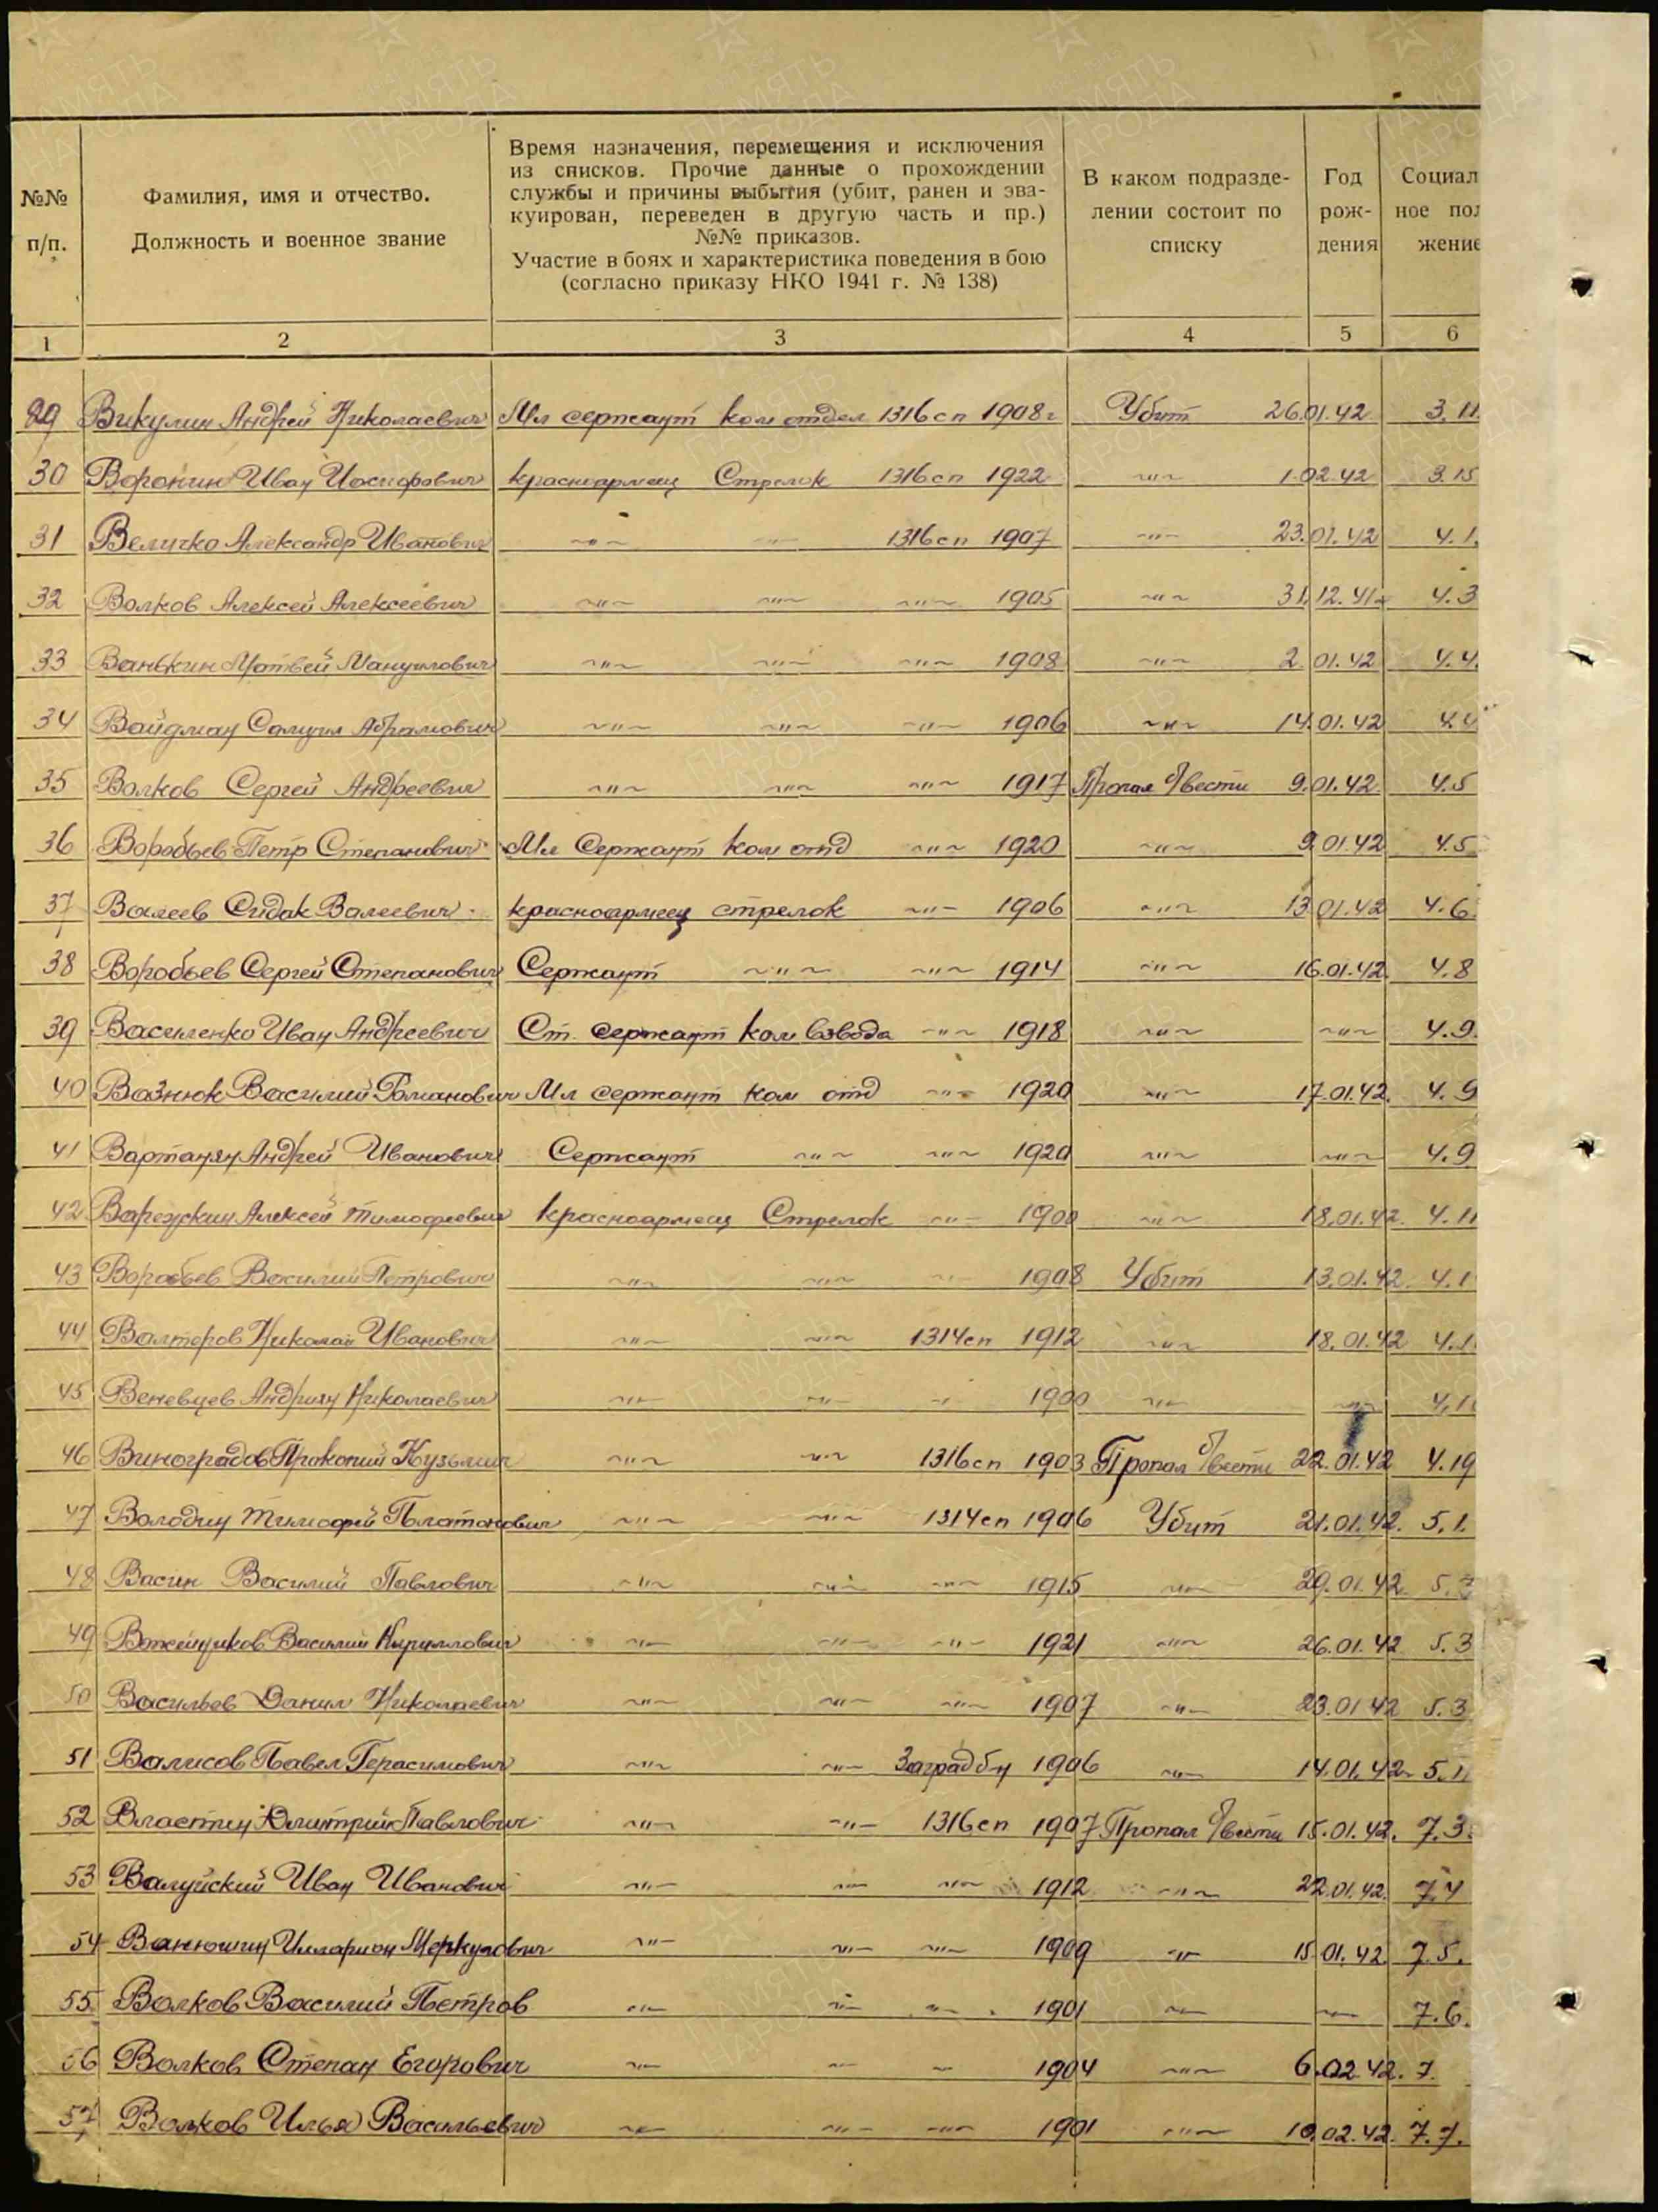 №№ п/п.
Фамилия, имя и отчество.
Должность и военное звание
Время назначения, перемещения и исключения
из списков. Прочие данные о прохождении
службы и причины выбытия (убит, ранен и эва-
куирован, переведен в другую часть и пр.)
№№ приказов.
Участие в боях и характеристика поведения в бою
(согласно приказу НКО 1941 г. № 138)
В каком подразде-
лении состоит по
списку
Год
рож-
дения
Социал
ное пол
жение
1 2 3 4 5 6
29 Викулин Андрей Николаевич Мл сержант ком отдел 1316 сп 1908 г Убит 26.01.42 3.11
30 Воронин Иван Иосифович красноармеец Стрелок 1316 сп 1922 -"- 1.02.42 3.15
31 Величко Александр Иванович -"- -"- 1316 сп 1907 -"- 23.01.42 4.1.
32 Волков Алексей Алексеевич -"- -"- -"- 1905 -"- 31.12.41 4.3
33 Ванькин Матвей Мануилович -"- -"- -"- 1908 -"- 2.01.42 4.4.
34 Вайдман Самуил Абрамович -"- -"- -"- 1906 -"- 14.01.42 4.4
35 Волков Сергей Андреевич -"- -"- -"- 1917 Пропал б/вести 9.01.42 4.5
36 Воробьев Петр Степанович Мл Сержант ком отд -"- 1920 -"- 9.01.42 4.5
37 Валеев Сидак Валеевич красноармеец стрелок -"- 1906 -"- 13.01.42 4.6
38 Воробьев Сергей Степанович Сержант -"- -"- 1914 -"- 16.01.42. 4.8
39 Василенко Иван Андреевич Ст. сержант ком взвода -"- 1918 -"- -"- 4.9.
40 Вазнюк Василий Романович Мл сержант ком отд -"- 1920 -"- 17.01.42. 4.9
41 Вартанян Андрей Иванович Сержант -"- -"- 1920 -"- -"- 4.9
42 Варежкин Алексей Тимофеевич красноармеец Стрелок -"- 1900 -"- 18.01.42. 4.11
43 Воробьев Василий Петрович -"- -"- -"- 1908 Убит 13.01.42. 4.1
44 Валтеров Николай Иванович -"- -"- 1314 сп 1912 -"- 18.01.42 4.1
45 Веневцев Андриян Николаевич -"- -"- -"- 1900 -"- -"- 4.1
46 Виноградов Прокопий Кузьмич -"- -"- 1316 сп 1903 Пропал б/вести 22.01.42 4.19
47 Володин Тимофей Платонович -"- -"- 1314 сп 1906 Убит 21.01.42. 5.1.
48 Васин Василий Павлович -"- -"- -"- 1915 -"- 29.01.42. 5.
49 Василий Кириллович -"- -"- -"- 1921 -"- 26.01.42 5.3
50 Васильев Данил Николаевич -"- -"- -"- 1907 -"- 23.01.42 5.3
51 Валисов Павел Герасимович -"- -"- Заград бн 1906 -"- 14.01.42 5.1
52 Властин Дмитрий Павлович -"- -"- 1316 сп 1907 Пропал б/вести 15.01.42. 7.3.
53 Валуйский Иван Иванович -"- -"- -"- 1912 -"- 22.01.42. 7.4
54 Ванюшин Илларион Меркулович -"- -"- -"- 1909 -"- 15.01.42. 7.5.
55 Волков Василий Петров -"- -"- -"- 1901 -"- -"- 7.6.
56 Волков Степан Егорович -"- -"- -"- 1904 -"- 6.02.42. 7.
57 Волков Илья Васильевич -"- -"- -"- 1901 -"- 10.02.42. 7.7.